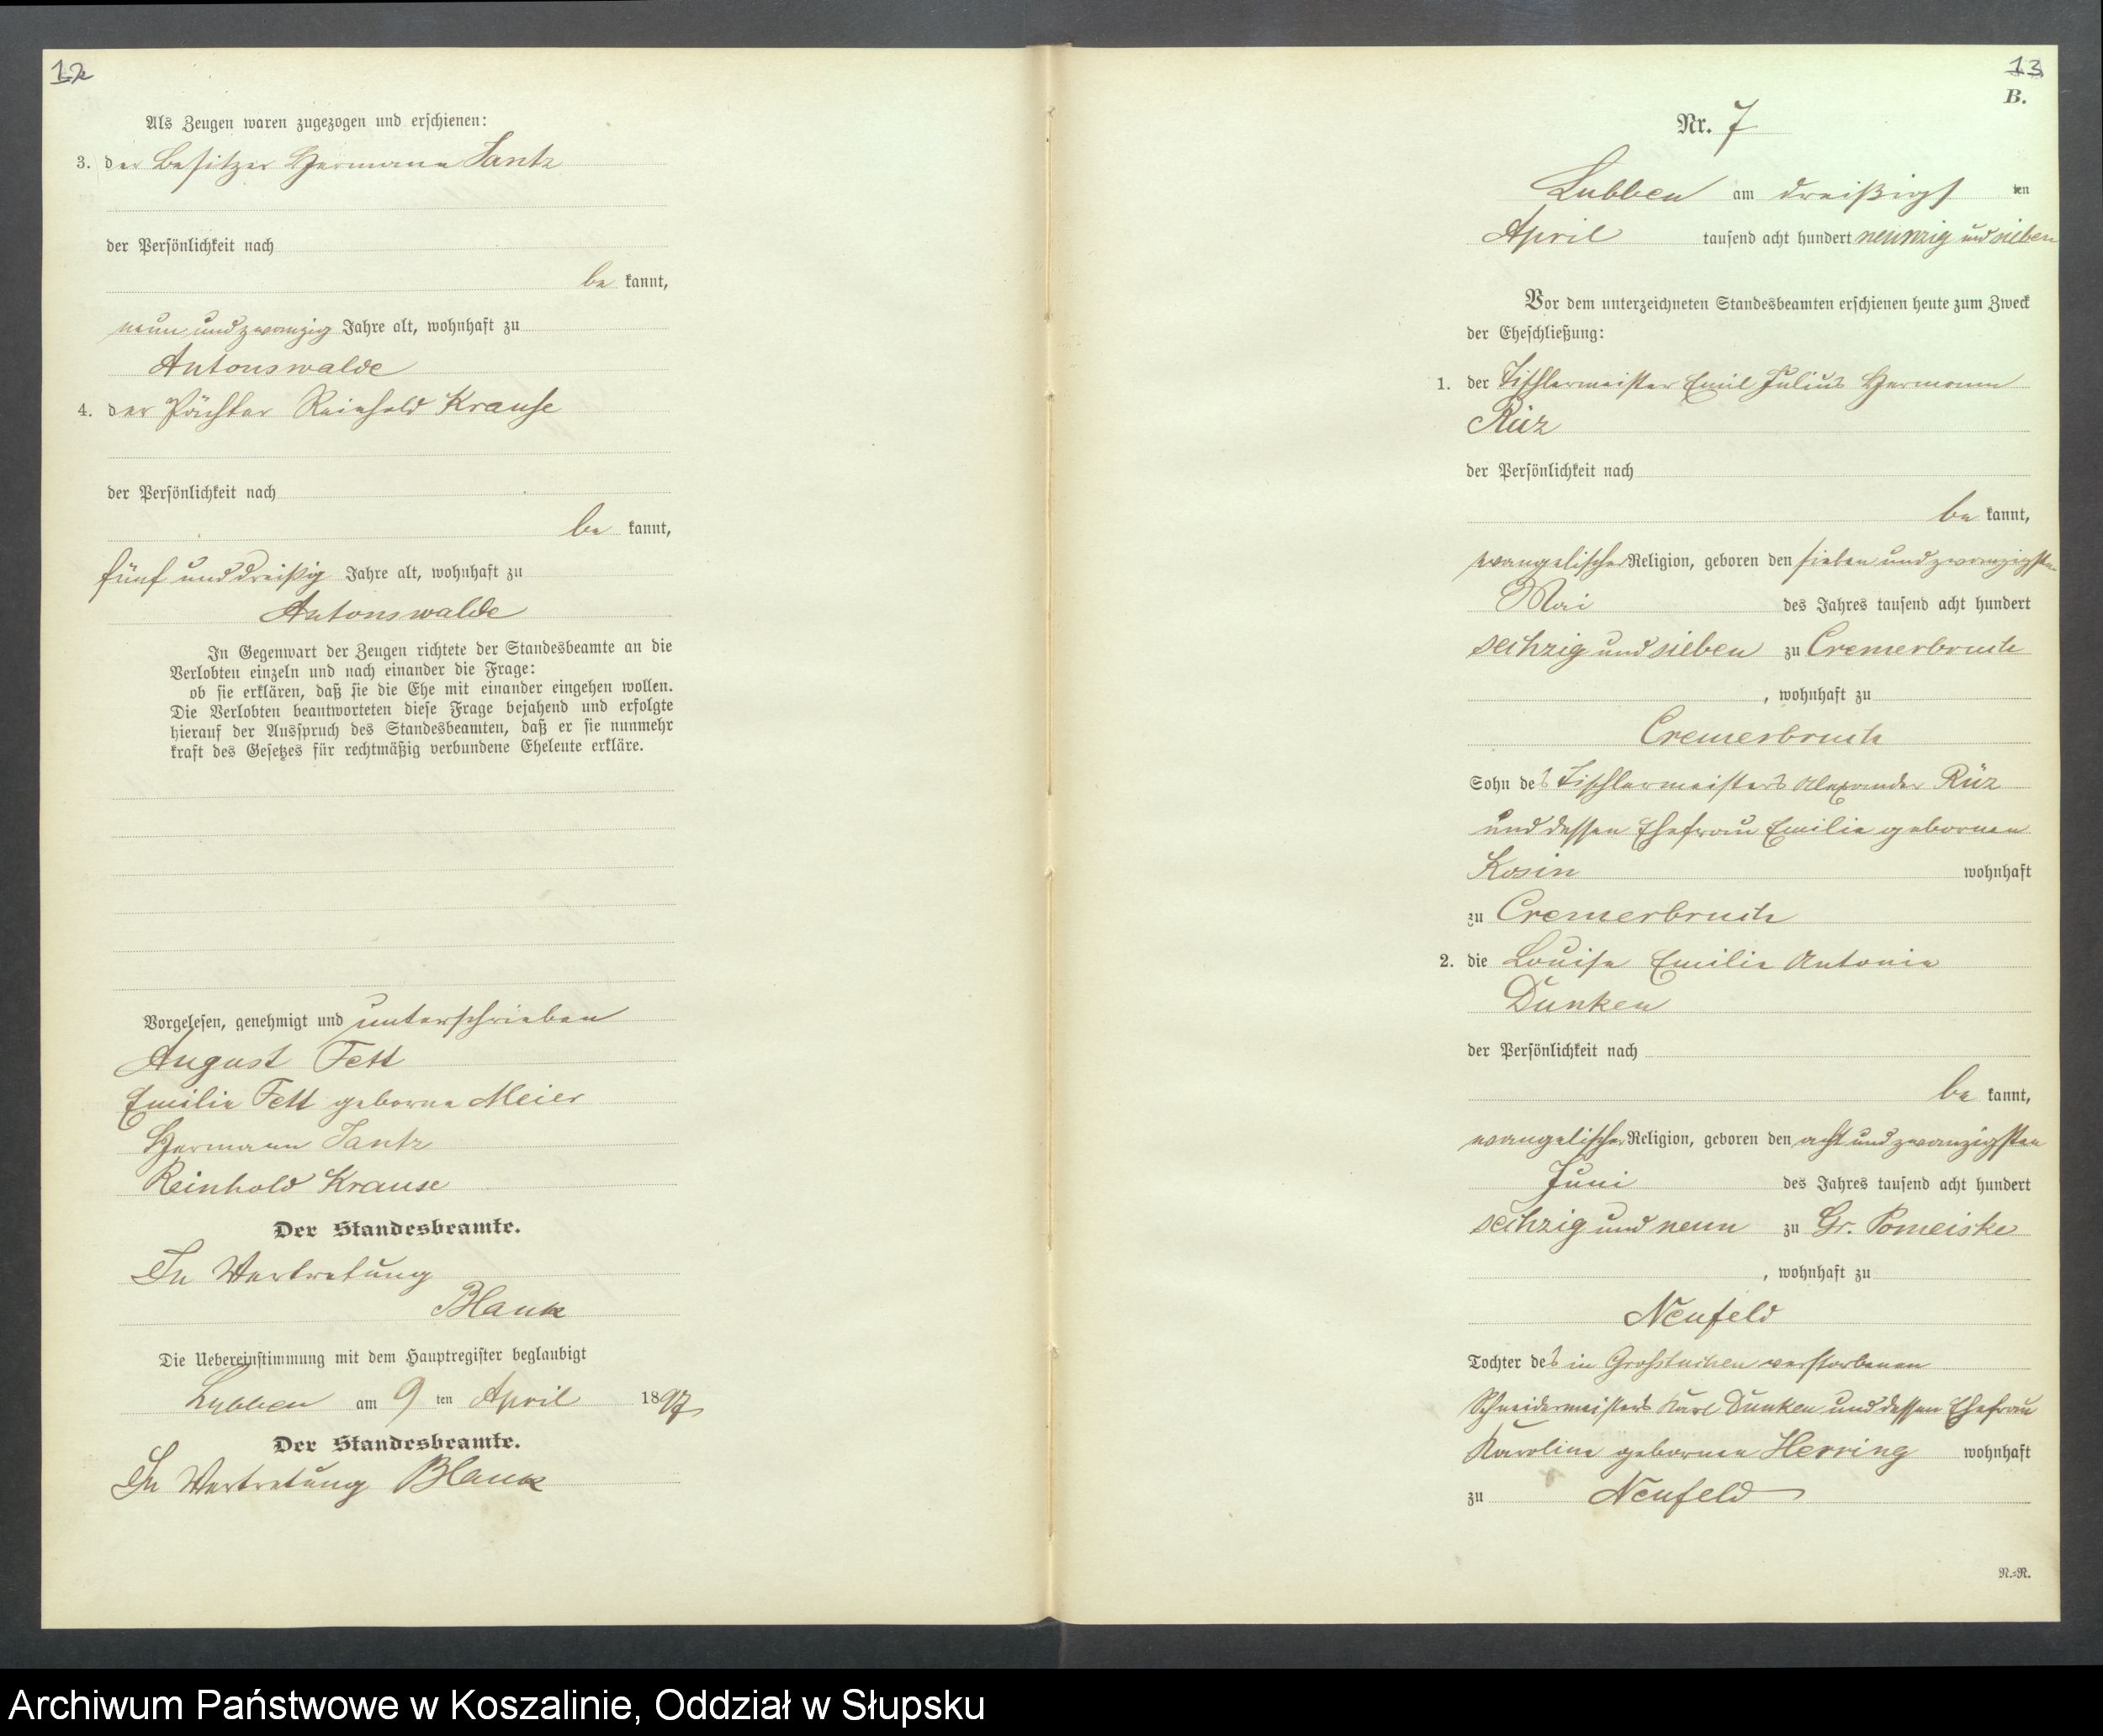 12
Als Zeugen waren zugezogen und erschienen:
3. der Besitzer Hermann Jantz
der Persönlichkeit nach
be kannt,
neun und zwanzig Jahre alt, wohnhaft zu
Antonswalde
4. der Pächter Reinhold Krause
der Persönlichkeit nach
be kannt,
fünf und dreißig Jahre alt, wohnhaft zu
Antonswalde
In Gegenwart der Zeugen richtete der Standesbeamte an die
Verlobten einzeln und nach einander die Frage:
ob sie erklären, daß sie die Ehe mit einander eingehen wollen.
Die Verlobten beantworteten diese Frage bejahend und erfolgte
hierauf der Ausspruch des Standesbeamten, daß er sie nunmehr
kraft des Gesetzes für rechtmäßig verbundene Eheleute erkläre.
Vorgelesen, genehmigt und unterschrieben
August Fett
Emilie Fett geborne Meier
Hermann Jantz
Reinhold Krause
Der Standesbeamte.
In Vertretung
Blank
Die Uebereinstimmung mit dem Hauptregister beglaubigt
Lubben am 9 ten April 1897
Der Standesbeamte.
In Vertretung Blank
13
B.
Nr. 7
Lubben am dreißigs ten
April tausend acht hundert neunzig und sieben
Vor dem unterzeichneten Standesbeamten erschienen heute zum Zweck
der Eheschließung:
1. der Tischlermeister Emil Julius Hermann
Rüz
der Persönlichkeit nach
be kannt,
evangelischer Religion, geboren den sieben und zwanzigsten
Mai des Jahres tausend acht hundert
sechzig und sieben zu Cremerbruch
, wohnhaft zu
Cremerbruch
Sohn des Tischlermeisters Alexander Rüz
und dessen Ehefrau Emilie gebornen
Kosin wohnhaft
zu Cremerbruch
2. die Louise Emilie Antonie
Dunken
der Persönlichkeit nach
be kannt,
evangelischer Religion, geboren den acht und zwanzigsten
Juni des Jahres tausend acht hundert
sechzig und neun zu Gr. Pomeiske
, wohnhaft zu
Neufeld
Tochter des in Großtuchen verstorbenen
Schneidermeisters Karl Dunken und dessen Ehefrau
Karoline gebornen Herring wohnhaft
zu Neufeld
N.=N.
Archiwum Państwowe w Koszalinie, Oddział w Słupsku